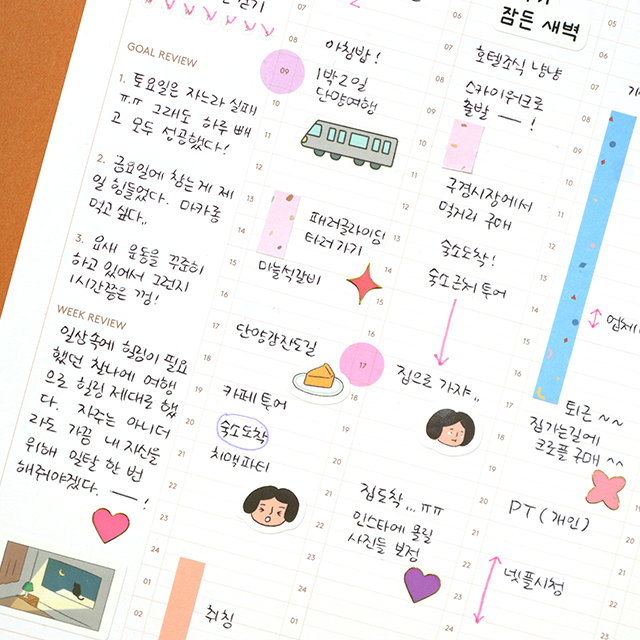 걷기
GOAL REVIEW
1. 토요일은 자느라 실패
ㅠㅠ 그래도 하루 빼
고 모두 성공했다!
2. 금요일에 참는게 제
일 힘들었다. 마카롱
먹고 싶다..
3. 요새 운동을 꾸준히
하고 있어서 그런지
1시간쯤은 껌!
WEEK REVIEW
일상속에 힐링이 필요
했던 찰나에 여행
으로 힐링 제대로 했
다. 자주는 아니더
라도 가끔 내 자신을
위해 일탈 한 번
해줘야겠다. ㅡ!
08
아침밥!
09
1박2일
단양여행
10
11
12
13
패러글라이딩
타러가기
14
마늘석갈비
15
16
17
단양잔도길
18
19
카페투어
20
숙소도착
21
치맥파티
22
23
24
01
02
취침
잠든 새벽
07
호텔조식 냠냠
08
스카이워크로
출발 ㅡ!
09
10
11
구경시장에서
먹거리 구매
12
13
숙소도착!
14
숙소근처 투어
15
16
17
집으로 가자..
18
19
20
21
집도착...ㅠㅠ
인스타에 올릴
사진들 보정
22
23
24
06
07
08
09
10
11
12
13
14
15
16
17
퇴근 ~~
집가는길에
크로플 구매 ^^
18
19
20
PT (개인)
21
22
넷플시청
23
24